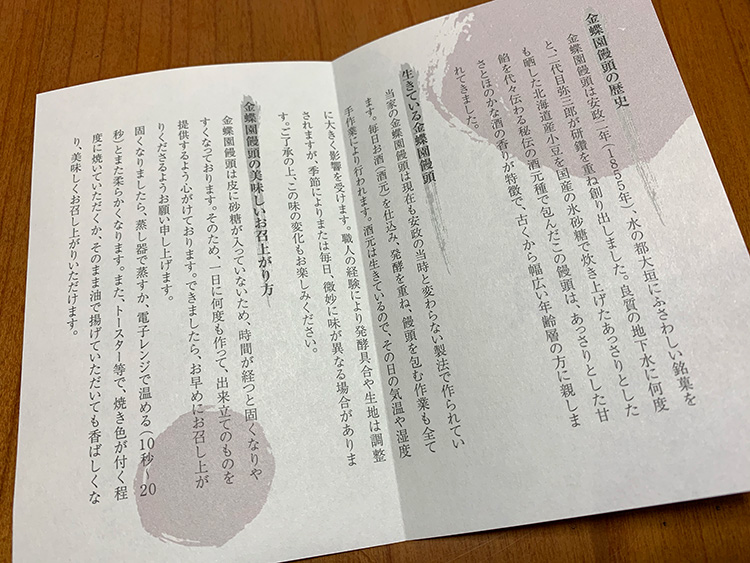 金蝶園饅頭の歴史
金蝶園饅頭は安政二年(1855年)、水の都大垣にふさわしい銘菓を
と、二代目弥三郎が研鑽を重ね創り出しました。良質の地下水に何度
も晒した北海道産小豆を国産の氷砂糖で炊き上げたあっさりとした
餡を代々伝わる秘伝の酒元種で包んだこの饅頭は、あっさりとした甘
さとほのかな酒の香りが特徴で、古くから幅広い年齢層の方に親しま
れてきました。
生きている金蝶園饅頭
当家の金蝶園饅頭は現在も安政の当時と変わらない製法で作られてい
ます。毎日お酒(酒元)を仕込み、発酵を重ね、饅頭を包む作業も全て
手作業により行われます。酒元は生きているので、その日の気温や湿度
に大きく影響を受けます。職人の経験により発酵具合や生地は調整
されますが、季節によりまたは毎日、微妙に味が異なる場合がありま
す。ご了承の上、この味の変化もお楽しみください。
金蝶園饅頭の美味しいお召上がり方
金蝶園饅頭は皮に砂糖が入っていないため、時間が経つと固くなりや
すくなっております。そのため、一日に何度も作って、出来立てのものを
提供するよう心がけております。できましたら、お早めにお召し上が
りくださるようお願い申し上げます。
固くなりましたら、蒸し器で蒸すか、電子レンジで温める(10秒~20
秒)とまた柔らかくなります。また、トースター等で、焼き色が付く程
度に焼いていただくか、そのまま油で揚げていただいても香ばしくな
り、美味しくお召し上がりいただけます。